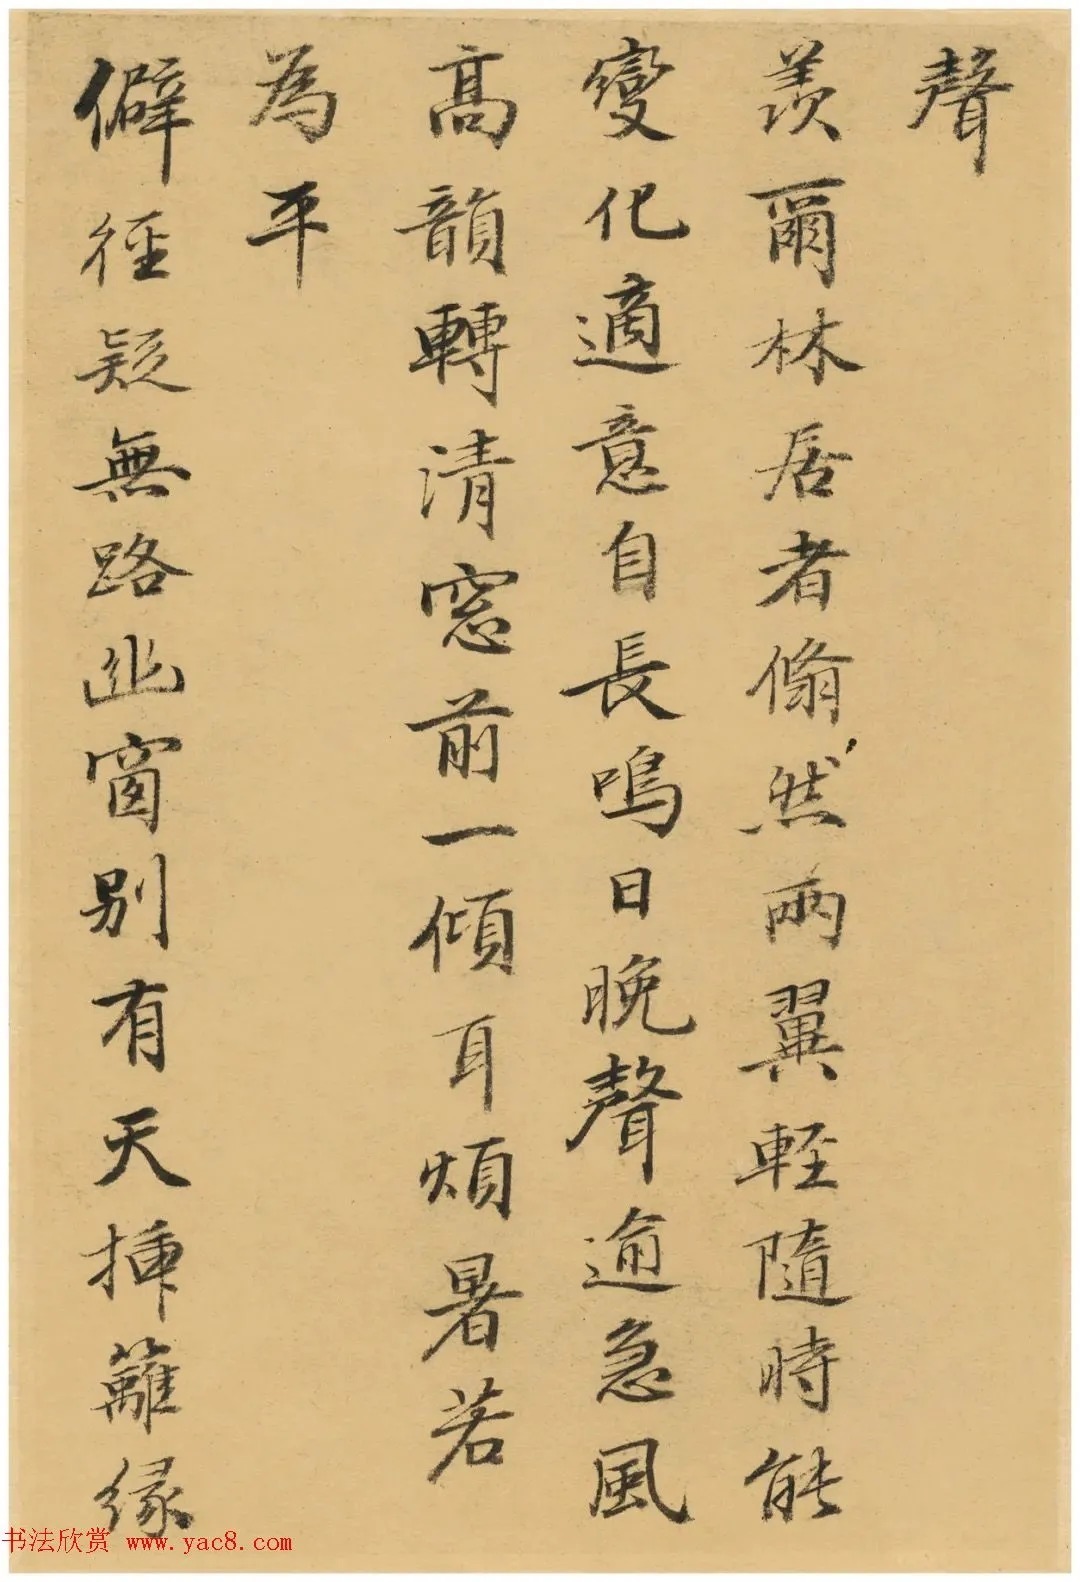 聲
羨爾林居者翛然兩翼輕隨時能
變化適意自長鳴日晚聲逾急風
高韻轉清窓前一傾耳煩暑若
為平
僻徑疑無路幽窗別有天插籬緣
书法欣赏 www.yac8.com